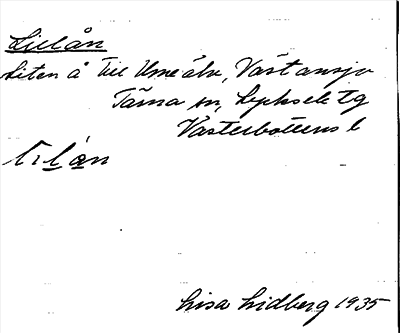 Lillån
Liten å till Umeälv, Västansjö
Tärna sn, Lycksele tg
Västerbottens l
lillån
Lisa Lidberg 1935